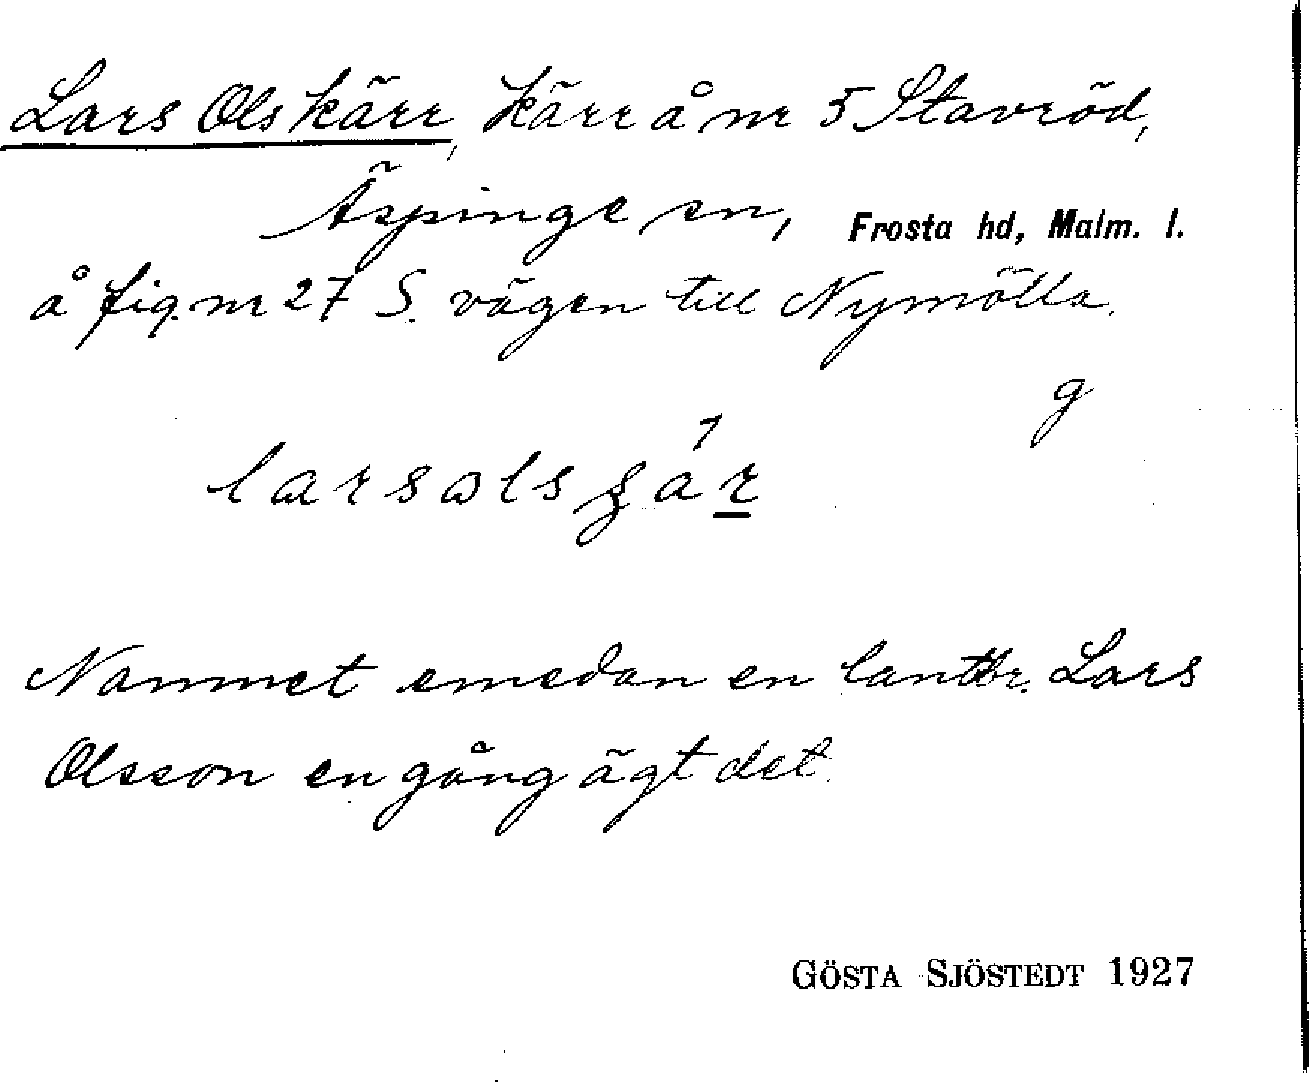 Lars Olskärr, kärr å nr 5 Stavröd,
Äspinge sn, Frosta hd, Malm. l.
å fig. nr 27 S. vägen till Nymölla.
g
Namnet emedan en lantbr. Lars
Olsson en gång ägt det.
GÖSTA SJÖSTEDT 1927